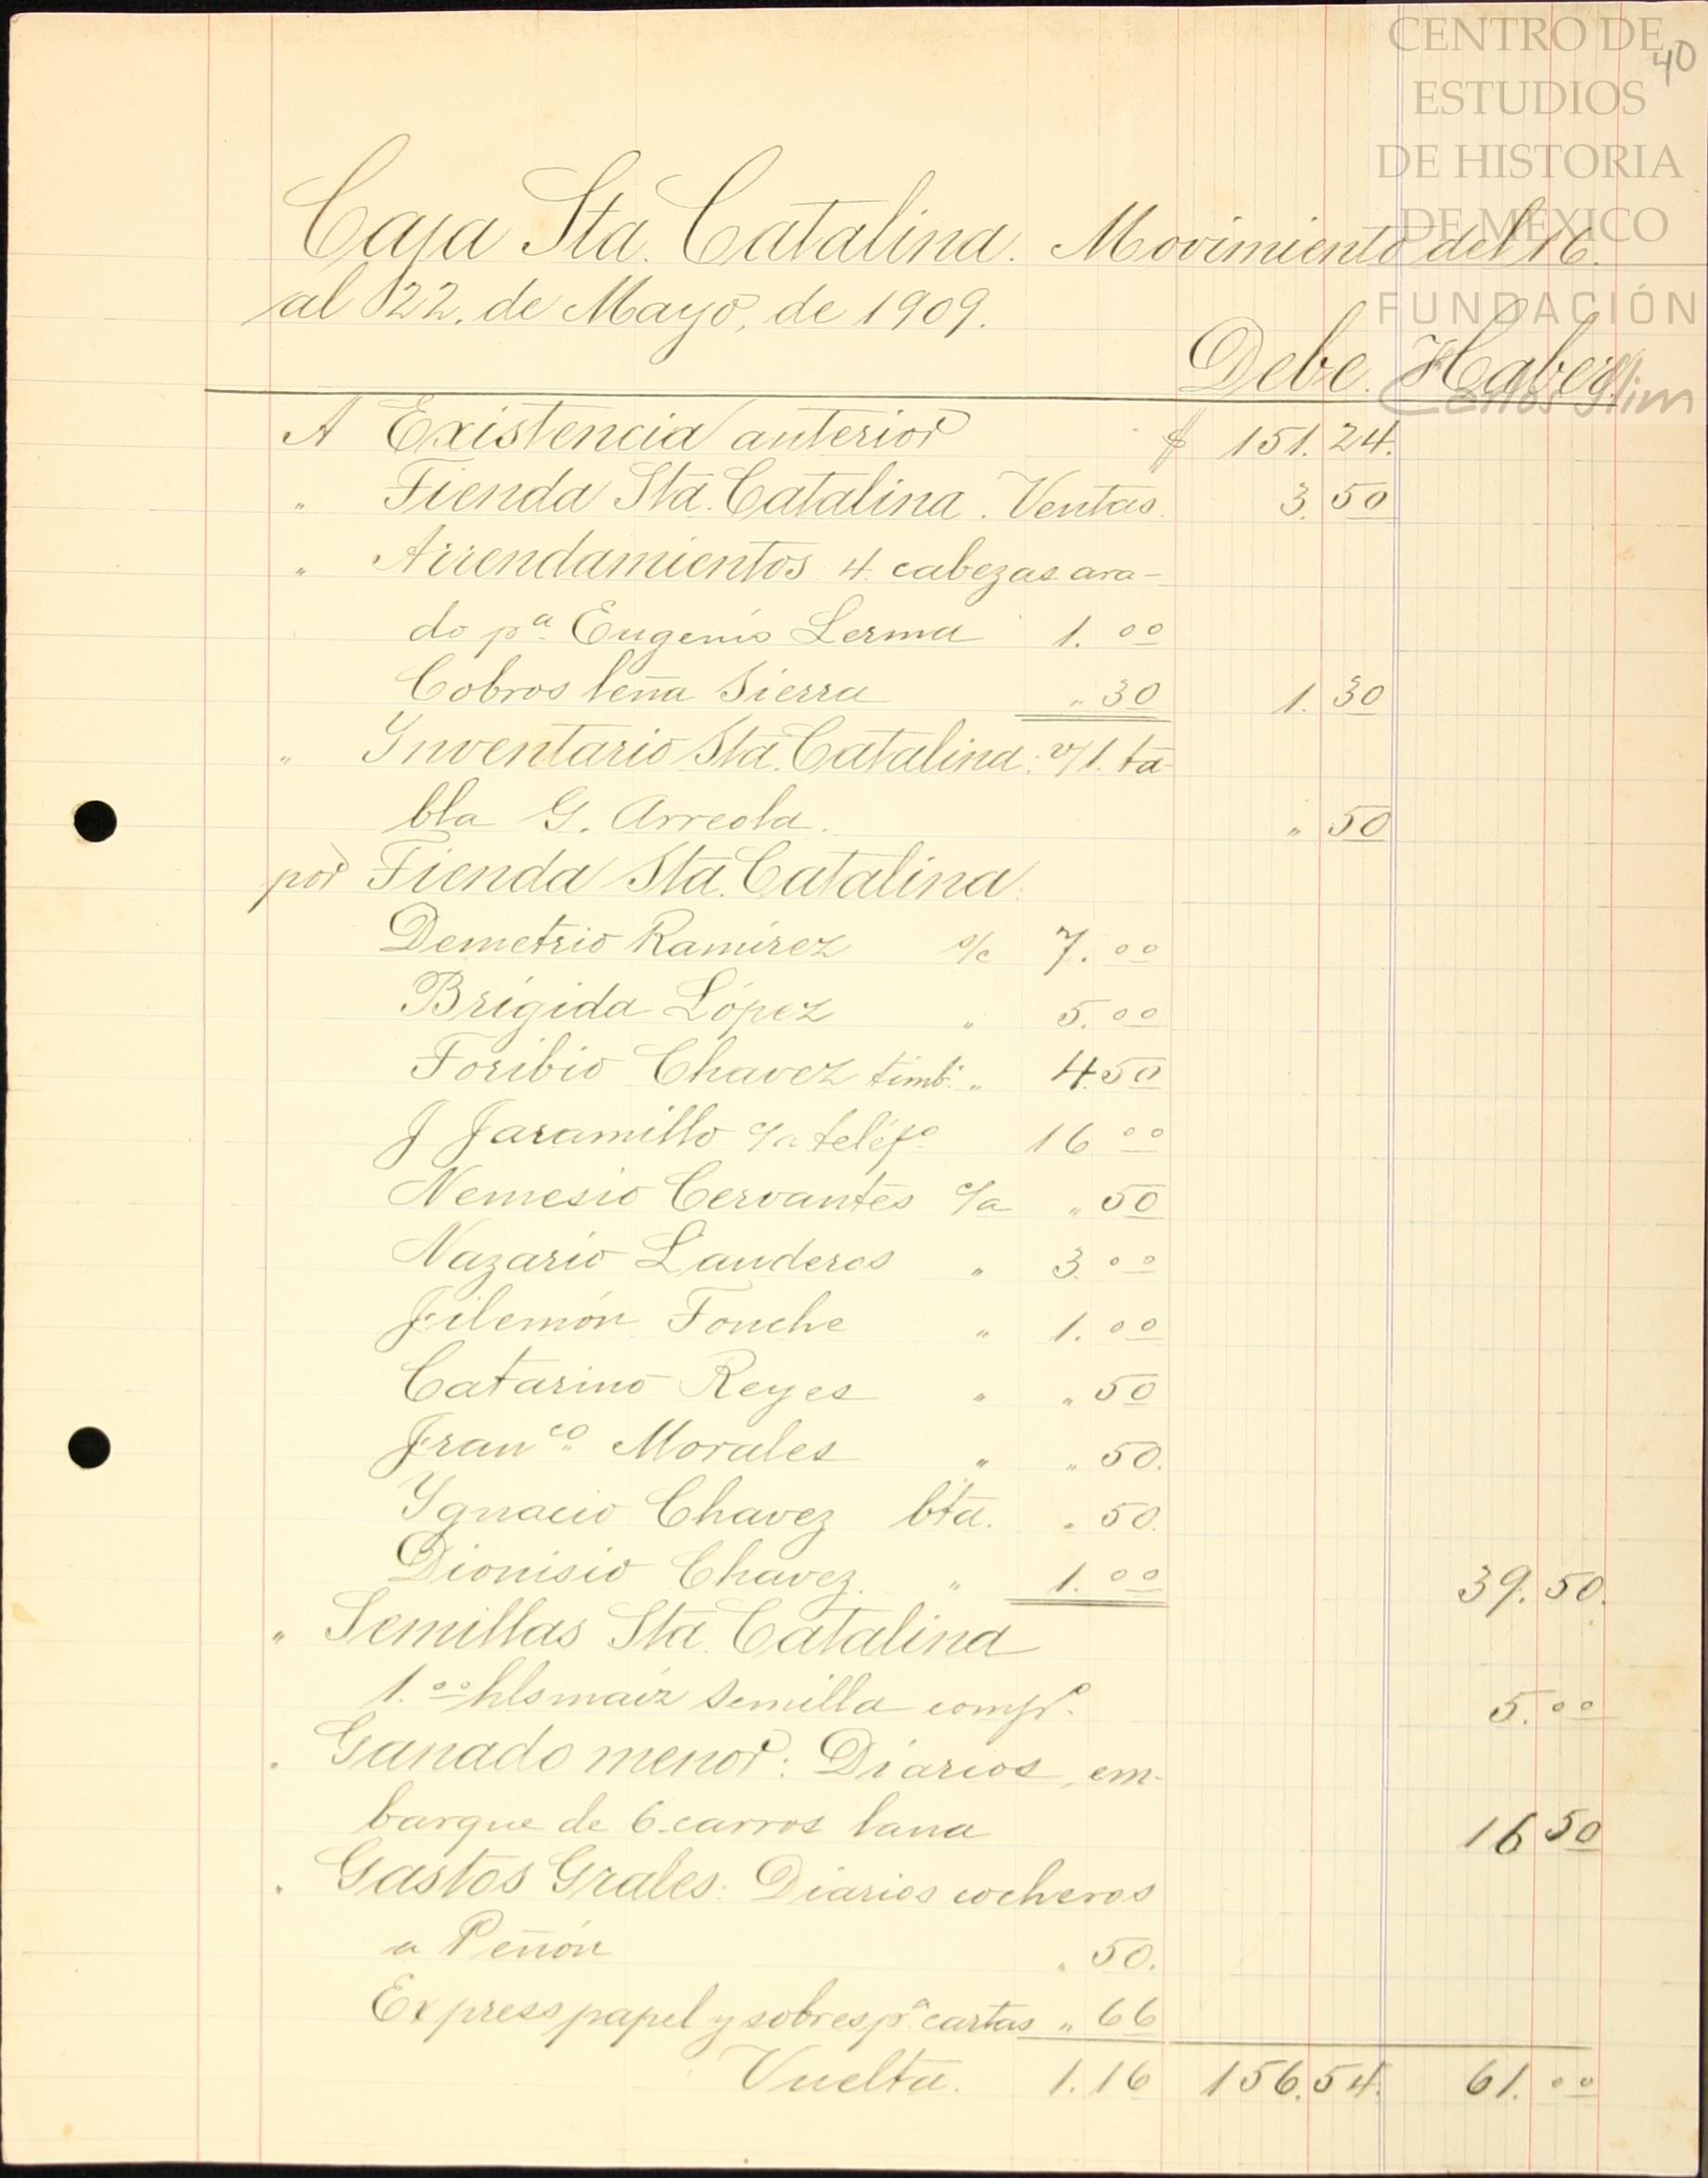 CENTRO DE
40
ESTUDIOS
DE HISTORIA
DE MÉXICO
FUNDACIÓN
Carlos Slim
Caja Sta. Catalina. Movimiento del 16.
al 22. de Mayo, de 1909.
Debe. Haber.
A Existencia anterior $ 151.24.
" Tienda Sta. Catalina. Ventas. 3.50
" Arrendamientos 4. cabezas ara-
do pa. Eugenio Lerma 1.00
Cobros leña Sierra " 30 1.30
" Inventario Sta. Catalina: v/1. ta-
bla G. Arreola. " 50
por Tienda Sta. Catalina.
Demetrio Ramírez s/c 7.00
Brígida López " 5.00
Toribio Chavez timb. " 4.50
J Jaramillo c/a teléfo 16 00
Nemesio Cervantes c/a " 50
Nazario Landeros " 3.00
Filemón Fouche " 1.00
Catarino Reyes " " 50
Franco. Morales " " 50.
Ygnacio Chavez bta. " 50.
Dionisio Chavez. " 1.00 39.50.
" Semillas Sta. Catalina
1.00 hls maíz semilla compr. 5.00
" Ganado menor: Diarios, em-
barque de 6. carros lana 16 50
" Gastos Grales: Diarios cocheros
a Peñón " 50.
Express papel y sobres pa. cartas " 66
Vuelta. 1.16 156.54. 61.00